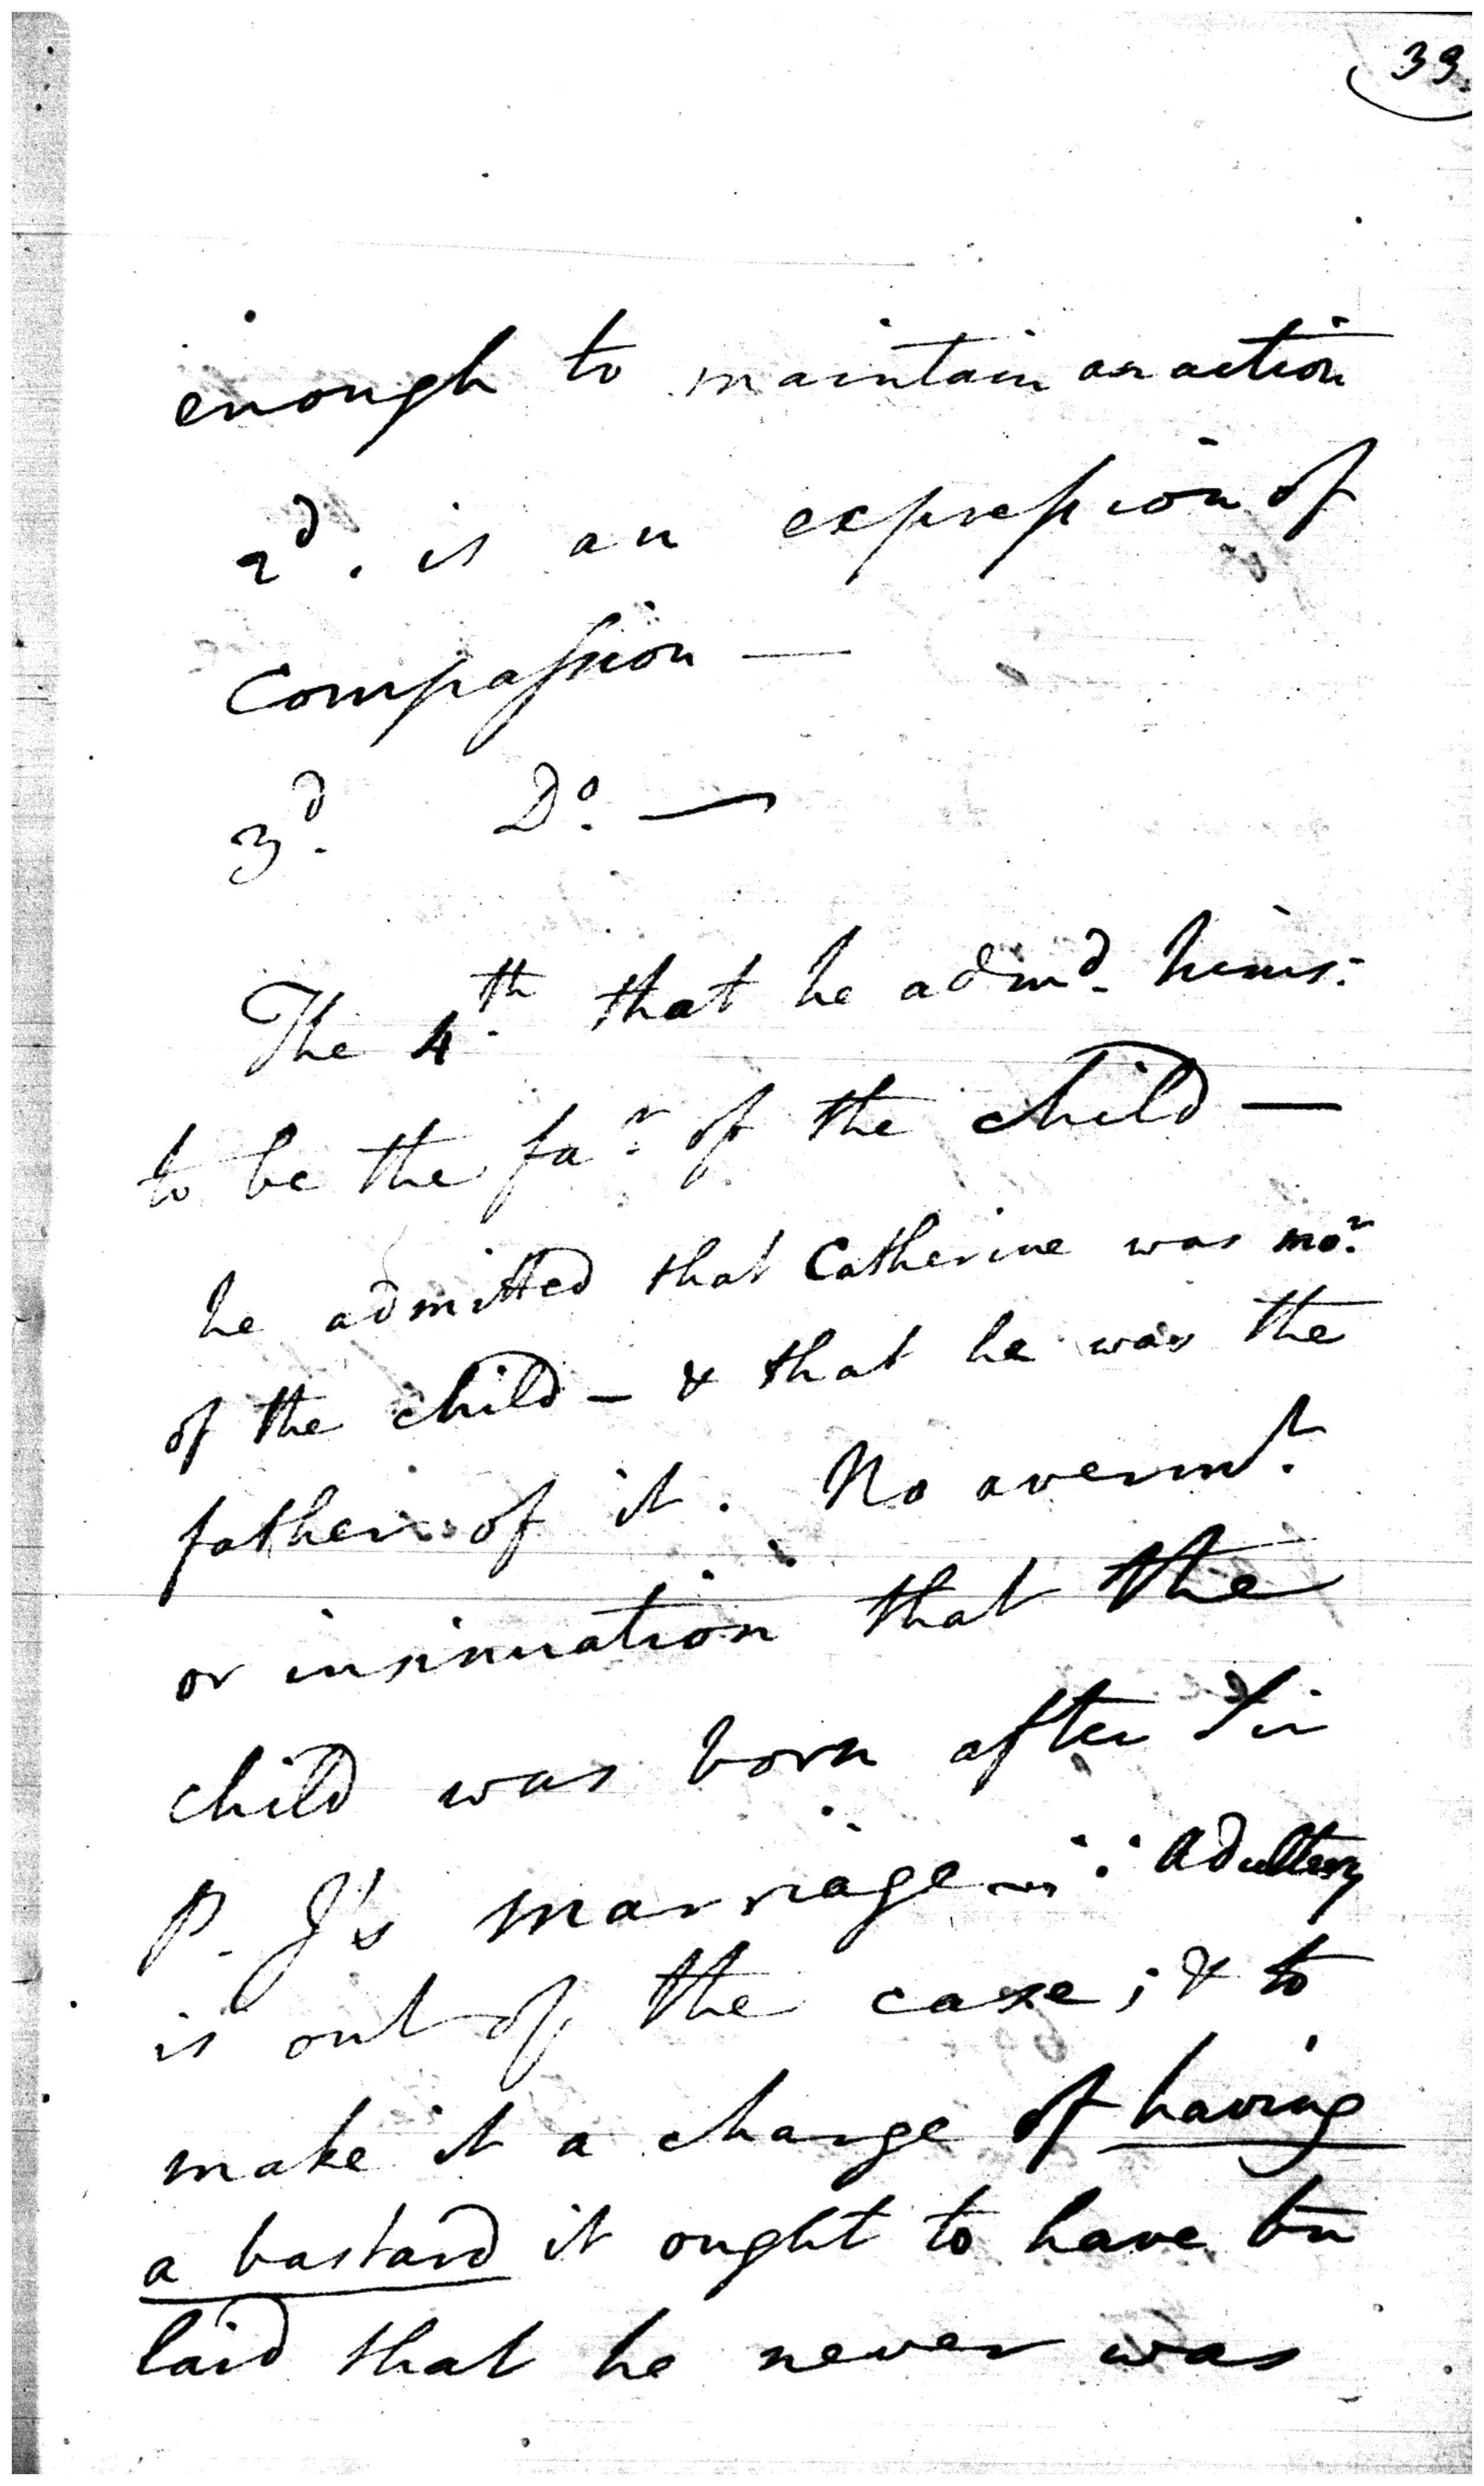 39.
enough to maintain an action
2d. is an expression of
Compassion —
3d. Do. —
The 4th. that he admd. hims:
to be the far. of the child —
he admitted that Catherine was mor.
of the child — & that he was the
father of it. No avermt.
or insinuation that the
child was born after Sir
P. J's marriage ∵ Adultery
is out of the case; & to
make it a charge of having
a bastard it ought to have bn
laid that he never was